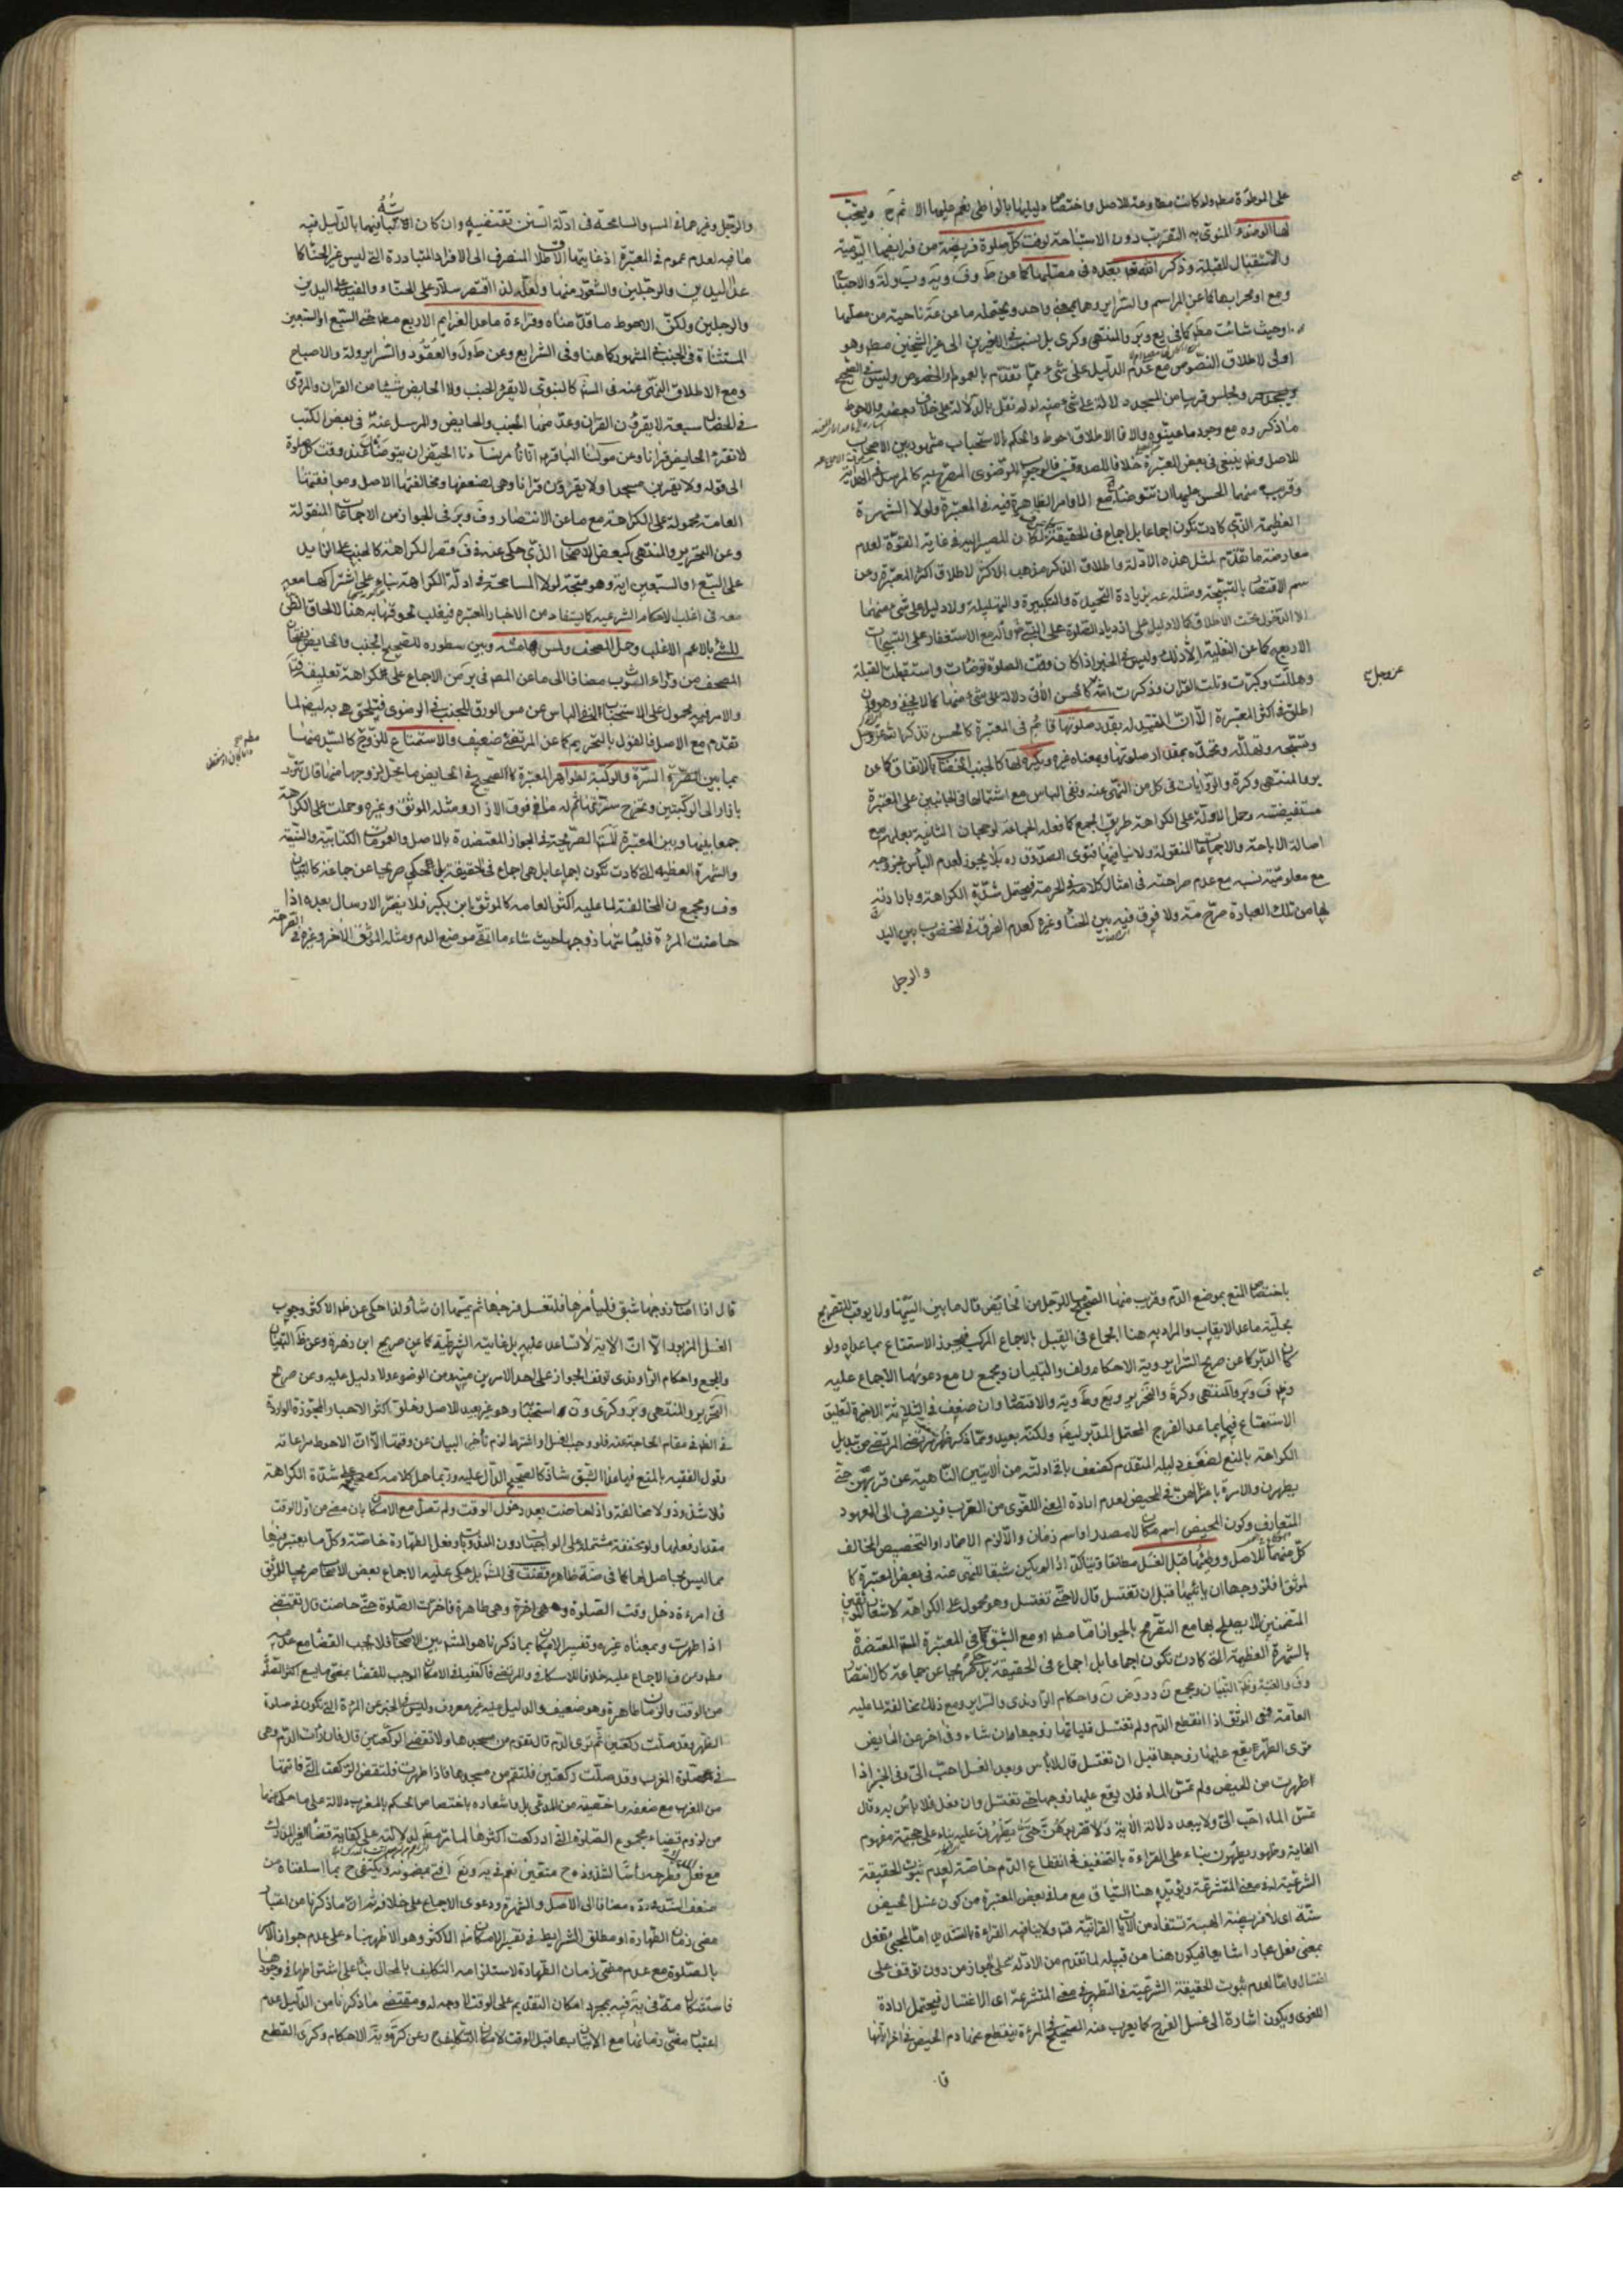 على الموطوءة مطلقا ولو كانت مطاوعة للاصل واختصاص دليلها بالواطي نعم عليها الاثم ح ويستحب
لها الوضوء المنوي به التقرب دون الاستباحة لوقت كل صلوة فريضة من فرايضها اليومية
والاستقبال للقبلة وذكر الله تعالى بعده في مصلاها كما عن
ومع او محرابها كما عن المراسم والسرائر وهما بمعنى واحد ويحتمله ما عن عة ناحية من مصلاها
او حيث شائت مطلقا كما في يع وبر والمنتهى وكرى بل نسبه في الاخيرين الى غير الشيخين مطلقا وهو
اولى لاطلاق النصوص مع عدم الدليل على شيء مما تقدم بالعموم او الخصوص وليس في الصحيح
وتجلس قريبا من المسجد دلالة على شيء منه لو لم نقل بالدلالة على خلاف بعضه والاحوط
ما ذكروه مع وجود ما عينوه والا فالاطلاق احوط والحكم بالاستحباب مشهور بين الاصحاب
للاصل وظ ينبغي في بعض المعتبرة خلافا للصدوقين فالوجوب للرضوي المصرح به كالمرسل في الهداية
وقريب منهما الحسن عليها ان تتوضأ مع الاوامر الظاهرة فيه في المعتبرة ولولا الشهرة
العظيمة التي كادت تكون اجماعا بل اجماع في الحقيقة لكان المصير اليه في غاية القوة لعدم
معارضة ما تقدم لمثل هذه الادلة واطلاق الذكر مذهب الاكثر لاطلاق اكثر المعتبرة وعن
الاقتصار بالتسبيح ومثله عنه بزيادة التحميدة والتكبيرة والتهليلة ولا دليل على شيء منهما
الا الدخول تحت الاطلاق كما لا دليل على ازدياد الصلوة على النبي واله مع الاستغفار على التسبيحات
الاربع كما عن النفلية الا ذلك وليس في الخبر اذا كان وقت الصلوة توضات واستقبلت القبلة
وهللت وكبرت وتلت القران وذكرت الله كالحسن الاتي دلالة على شيء منهما كما لا يخفى وهو وان
اطلق في اكثر المعتبرة الا ان التقييد له بقدر صلوتها قائم في المعتبرة كالحسن تذكر الله عز وجل
وتسبحه وتهلله وتحمده بمقدار صلوتها وبمعناه غيره ويكره لها كالجنب الخضاب بالاتفاق كما عن
بر والمنتهى وكرة والروايات في كل من النهي عنه ونفي الباس مع اشتمالها في الجانبين على المعتبرة
مستفيضة وحمل الاولة على الكراهة طريق الجمع كما فعله الجماعة لرجحان الثانية بعملهم مع
اصالة الاباحة والاجماعات المنقولة ولا ينافيها فتوى الصدوق ره بلا يجوز لعدم الباس بخروجه
مع معلومية نسبه مع عدم صراحته في امثال كلامه في الحرمة فيحتمل شدة الكراهة وبارادته
لها من تلك العبارة صرح مته ولا فرق فيه بين الحناء وغيره كعدم الفرق في المخضوب بين اليد
والرجل
عز وجل
والرجل وغيرهما في المشهور والمسامحة في ادلة السنن تقتضيه وان كان الاكتفاء فيها بالدليل فيه
ما فيه لعدم عموم في المعتبرة اذ غايتها الاطلاق المنصرف الى الافراد المتبادرة التي ليس غير الحنا كما
عدا اليدين والرجلين والشعور منها ولعله لذا اقتصر سلار على الحناء والمفيد على اليدين
والرجلين ولكن الاحوط ما قلناه وقراءة ما عدا العزايم الاربع مطلقا حتى السبع او السبعين
المستثناة في الجنب في المشهور كما هنا وفي الشرايع وعن ط ول والعقود والسراير ولة والاصباح
ومع الاطلاق النهي عنه في السنة كالنبوي لا يقرء الجنب ولا الحايض شيئا من القران والمروي
في الخصال سبعة لا يقرؤن القران وعد منها الجنب والحايض والمرسل عنه في بعض الكتب
لا تقرء الحايض قرانا وعن مولينا الباقر انا نامر نساءنا الحيض ان يتوضأن عند وقت كل صلوة
الى قوله ولا يقربن مسجدا ولا يقرؤن قرانا وهي لضعفها ومخالفتها الاصل وموافقتها
العامة محمولة على الكراهة مع ما عن الانتصار وف وبر في الجواز من الاجماعات المنقولة
وعن التحرير والمنتهى كبعض الاصحاب الذي حكى عنه في ف قصر الكراهة كالجنب على الزايد
على السبع او السبعين ايه وهو متجه لولا المسامحة في ادلة الكراهة بناء على اشتراكها معه
معه في اغلب الاحكام الشرعية كما يستفاد من الاخبار المعتبرة فيغلب لحوقها به هنا لالحاق الظن
للشئ بالاعم الاغلب وحمل المصحف ولمس هامشه وبين سطوره للصحيح الجنب والحايض يفتحان
المصحف من وراء الثوب مضافا الى ما عن المصنف في بر من الاجماع على الكراهة تعليقه
والامر فيه محمول على الاستحباب لنفي الباس عن مس الورق للجنب في الرضوي فيلحق هي به ايضا لما
تقدم مع الاصل فالقول بالتحريم كما عن المرتضى ضعيف والاستمتاع للزوج كالسيد منها
بما بين السرة والركبة لظواهر المعتبرة كالصحيح في الحايض ما يحل لزوجها منها قال تتزر
بازار الى الركبتين وتخرج سرتها ثم له ما فوق الازار ومثله الموثق وغيره وحملت على الكراهة
جمعا بينها وبين المعتبرة الصريحة في الجواز المعتضدة بالاصل والعمومات الكتابية والسنية
والشهرة العظيمة التي كادت تكون اجماعا بل هي اجماع في الحقيقة بل المحكي صريحا عن جماعة كالتبيان
وف ومجمع ن للمخالفة لما عليه اكثر العامة كالموثق ابن بكير فلا يضر الارسال بعده اذا
حاضت المرءة فلياتها زوجها حيث شاء ما اتقى موضع الدم ومثله الموثق الاخر وغيره في القراحة
باختصاص المنع بموضع الدم وقريب منها الصحيح للرجل من الحايض قال ما بين اليتيها ولا يوقب للتصريح
بحلية ما عدا الايقاب والمراد به هنا الجماع في القبل بالاجماع المركب فيجوز الاستمتاع بما عداه ولو
كان الدبر كما عن صريح السراير وية الاحكام ولف والتبيان ومجمع ن مع دعويهما الاجماع عليه
الاستمتاع فيها بما عدا الفرج المحتمل للدبر ايضا ولكنه بعيد ومما ذكر ظهر ضعف المرتضى من تبديل
الكراهة بالمنع لضعف دليله المتقدم كضعف باقي ادلته من الايتين الناهية عن قربهن حتى
يطهرن والامرة باعتزالهن في المحيض لعدم ارادة المعنى اللغوي من القرب فينصرف الى المعهود
المتعارف وكون المحيض اسم مكان لا مصدر او اسم زمان والا لزم الاضمار او التخصيص المخالف
كل منهما للاصل ووطئها قبل الغسل مطلقا ويتاكد اذا لم يكن شبقا للنهي عنه في بعض المعتبرة كا
لموثق افلزوجها ان ياتيها قبل ان تغتسل قال لا حتى تغتسل وهو محمول على الكراهة كاشعار
المتضمنين للا يصلح بها مع التصريح بالجواز اما مطلقا او مع الشبق كما في المعتبرة المعتضدة
بالشهرة العظيمة التي كادت تكون اجماعا بل اجماع في الحقيقة بل حكي صريحا عن جماعة كالانتصار
وف والغنية وظ التبيان ومجمع ن وروض ن واحكام الراوندي والسراير ومع ذلك مخالفة لما عليه
العامة ففي الموثق اذا انقطع الدم ولم تغتسل فلياتها زوجها ان شاء وفي اخر عن الحايض
ترى الطهر يقع عليها زوجها قبل ان تغتسل قال لا باس وبعد الغسل احب الي وفي الخبر اذا
طهرت من الحيض ولم تمس الماء فلا يقع عليها زوجها حتى تغتسل وان فعل فلا باس به وقال
تمس الماء احب الي ولا يبعد دلالة الاية ولا تقربوهن حتى يطهرن عليه بناء على حجية مفهوم
الغاية وظهور يطهرن بناء على القراءة بالتخفيف في انقطاع الدم خاصة لعدم ثبوت الحقيقة
الشرعية له في معنى المتشرعة ويؤيده هنا السياق مع ما في بعض المعتبرة من كون غسل الحيض
سنة اي لا فريضة الهية تستفاد من الايات القرانية فته ولا ينافيه القراءة بالتشديد اما لمجيء تفعل
بمعنى فعل مجازا شايعا فيكون هنا من قبيله لما تقدم من الادلة على الجواز من دون توقف على
اغتسال واما لعدم ثبوت الحقيقة الشرعية في التطهر في معنى المتشرعة اي الاغتسال فيحتمل ارادة
اللغوي ويكون اشارة الى غسل الفرج كما يعرب عنه الصحيح في المرءة ينقطع عنها دم الحيض في اخر ايامها
قا
قال اذا اصاب زوجها شبق فليامرها فلتغسل فرجها ثم يمسها ان شاء ولذا حكي عن ظ الاكثر وجوب
الغسل المزبور الا ان الاية لا تساعد عليه بل غايته الشرطية كما عن صريح ابن زهرة وعن ظ التبيان
والمجمع واحكام الراوندي توقف الجواز على احد الامرين منه ومن الوضوء ولا دليل عليه وعن صريح
التحرير والمنتهى وبر وكرى ون استحبابه وهو غير بعيد للاصل وخلو اكثر الاخبار المجوزة الواردة
في الظ في مقام الحاجة عنه فلو وجب الغسل او اشترط لزم تاخير البيان عن وقتها الا ان الاحوط مراعاته
وقول الفقيه بالمنع فيما عدا الشبق شاذ كالصحيح الدال عليه وربما حمل كلامه كصحيح على شدة الكراهة
فلا شذوذ ولا مخالفة واذا حاضت بعد دخول الوقت ولم تصل مع الامكان بان مضى من اول الوقت
مقدار فعلها ولو مخففة مشتملة على الواجبات دون المندوبات وفعل الطهارة خاصة وكل ما يعتبر فيها
مما ليس بحاصل لها كما في صة ظاهرة قضت في المشهور بل حكي عليه الاجماع بعض الاصحاب صريحا للموثق
في امرءة دخل وقت الصلوة وهي طاهرة فاخرت الصلوة حتى حاضت قال تقضي
اذا طهرت وبمعناه غيره وتفسير الامكان بما ذكرناه هو المشهور بين الاصحاب فلا يجب القضا مع عدمه
مطلقا وعن ف الاجماع عليه خلافا للاسكافي والمرتضى فاكتفيا في الامكان الموجب للقضا بمضي ما يسع اكثر الصلوة
من الوقت والزمان طاهرة وهو ضعيف والدليل عليه غير معروف وليس في الخبر عن المرءة التي تكون في صلوة
الظهر وقد صلت ركعتين ثم ترى الدم قال تقوم من مسجدها ولا تقضي الركعتين قال فان رات الدم وهي
في صلوة المغرب وقد صلت ركعتين فلتقم من مسجدها فاذا طهرت فلتقض الركعة التي فاتتها
من المغرب مع ضعفه واخصيته من المدعى بل واشعاره باختصاص الحكم بالمغرب دلالة على ما حكي عنهما
من لزوم قضاء مجموع الصلوة التي ادركت اكثرها
مع فعل
ضعف السند رده مضافا الى الاصل والشهرة ودعوى الاجماع على خلافه ثم ان ما ذكرنا من اعتبار
مضي زمان الطهارة او مطلق الشرايط في تفسير الامكان هو الاكثر وهو الاظهر بناء على عدم جواز الامر
بالصلوة مع عدم مضي زمان الطهارة لاستلزامه التكليف بالمحال بناء على اشتراطها في وجودها
فاستشكال مته في ية فيه بمجرد امكان التقديم على الوقت لا وجه له ومقتضى ما ذكرنا من الدليل عدم
اعتبار مضي زمانها مع الاتيان بها قبل الوقت لامكان التكليف ح وعن كرة وية الاحكام وكرى القطع